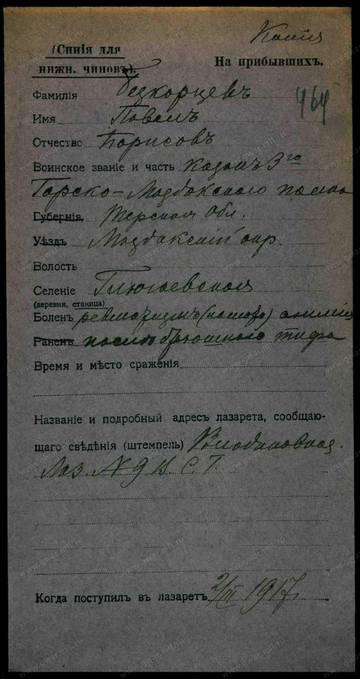 Копія
(Синія для
нижн. чиновъ).
На прибывшихъ.
464
Фамилія Безкорцевъ
Имя Павелъ
Отчество Борисовъ
Воинское званіе и часть Казакъ 3го
Горско-Моздокскаго полка
Губернія Терская Обл.
Уѣздъ Моздокскій окр.
Волость
Селеніе
(деревня, станица)
Боленъ ревматизмъ
Раненъ послѣ брюшного тифа
Время и мѣсто сраженія
Названіе и подробный адресъ лазарета, сообщаю-
щаго свѣдѣнія (штемпель)
Лаз. N 9 В. С. Г.
Когда поступилъ въ лазаретъ 2/III 1917.